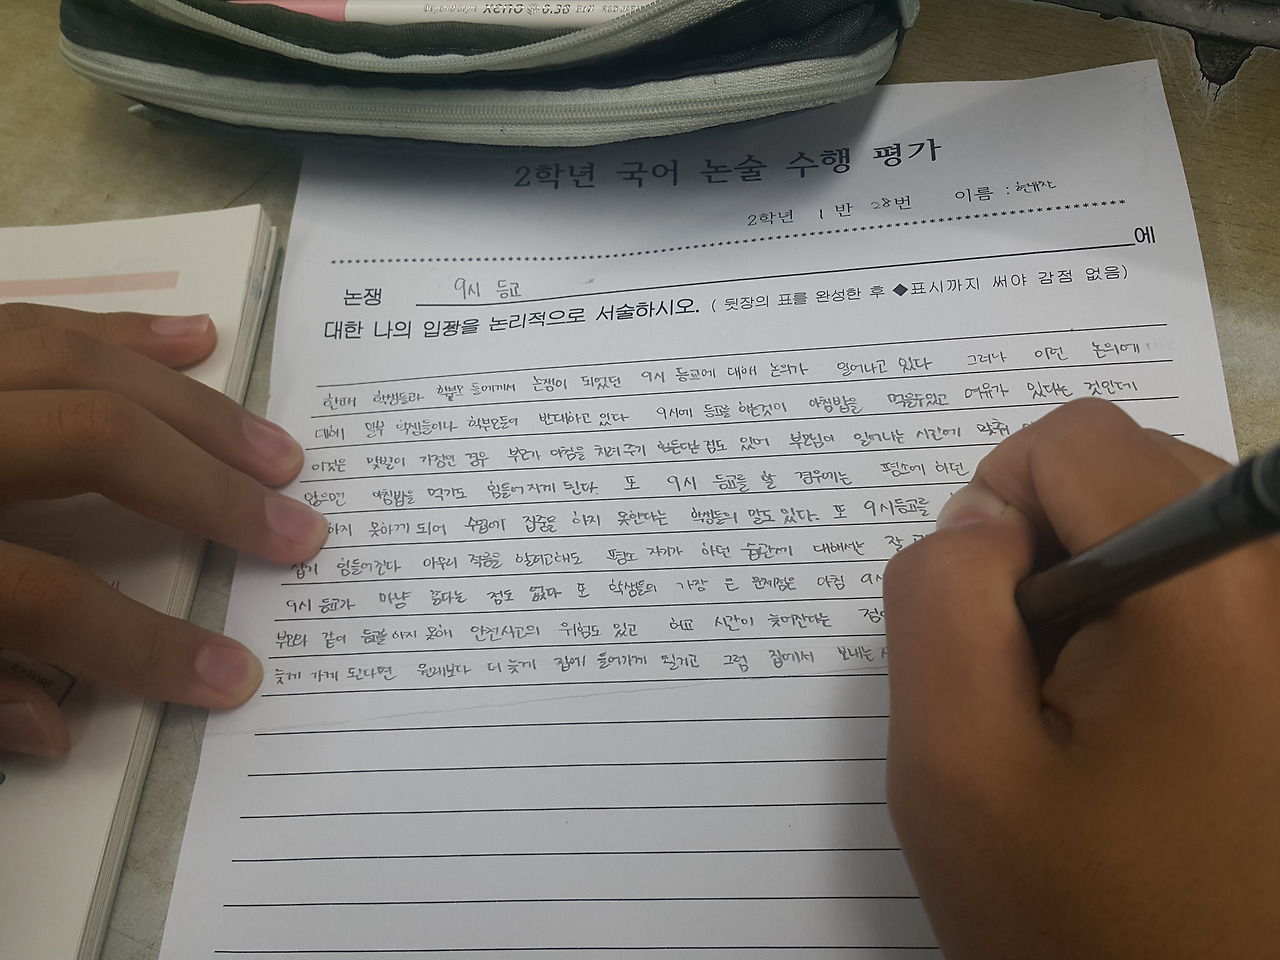 XENO 0.38
2학년 국어 논술 수행 평가
2학년 1 반 28번 이름 :
논쟁 9시 등교 에
대한 나의 입장을 논리적으로 서술하시오. ( 뒷장의 표를 완성한 후 ◆표시까지 써야 감점 없음)
한때 학생들과 학부모 들에게서 논쟁이 되었던 9시 등교에 대해 논의가 일어나고 있다 그러나 이런 논의에
대해 일부 학생들이나 학부모들이 반대하고 있다 9시에 등교를 하는것이 아침밥을 먹을수있고 여유가 있다는 것인데
이것은 맞벌이 가정인 경우 부모가 아침을 차려 주기 힘든다는 점도 있어 부모님이 일어나는 시간에 맞춰
않으면 아침밥을 먹기도 힘들어 지게 된다. 또 9시 등교를 할 경우에는 평소에 하던
하지 못하게 되어 수업에 집중을 하지 못한다는 학생들의 말도 있다. 또 9시등교를
힘들어진다 아무리 적응을 하려고해도 자기가 하던 습관에 대해서는 잘
9시 등교가 마냥 좋다는 점도 없다 또 학생들의 가장 큰 문제점은 아침 9시
부모와 같이 등교를 하지 못해 안전사고의 위험도 있고 하교 시간이 늦어진다는 점
늦게 가게 된다면 원래보다 더 늦게 집에 들어가게 될거고 그럼 집에서 보내는